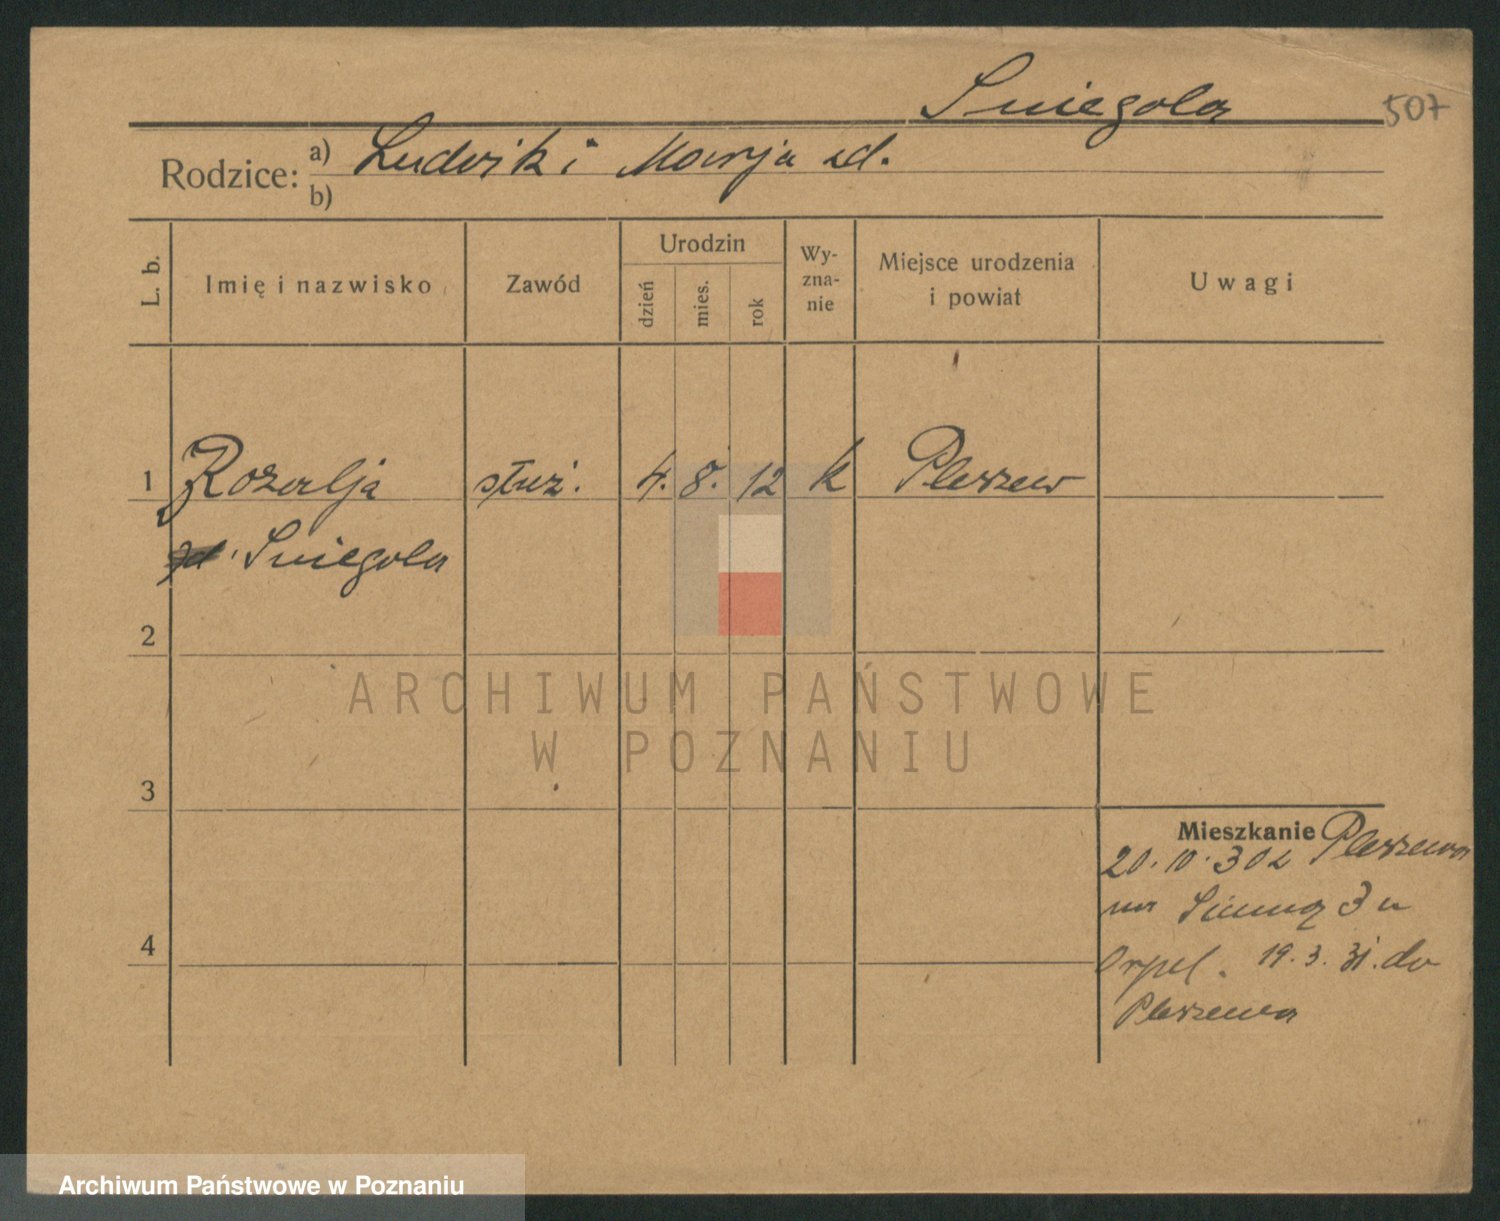 Sniegola
507
Rodzice: a) Ludwik i Marja zd.
b)
L. b.
Imię i nazwisko
Zawód
Urodzin
dzień
mies.
rok
Wy-
zna-
nie
Miejsce urodzenia
i powiat
Uwagi
1 Rozalja służ. 4. 8. 12 k Pleszew
zd. Sniegola
2
3
4
Mieszkanie Pleszewa
20.10.30 z
na 3 u
19.3.31. do
Pleszewa
ARCHIWUM PAŃSTWOWE
W POZNANIU
Archiwum Państwowe w Poznaniu